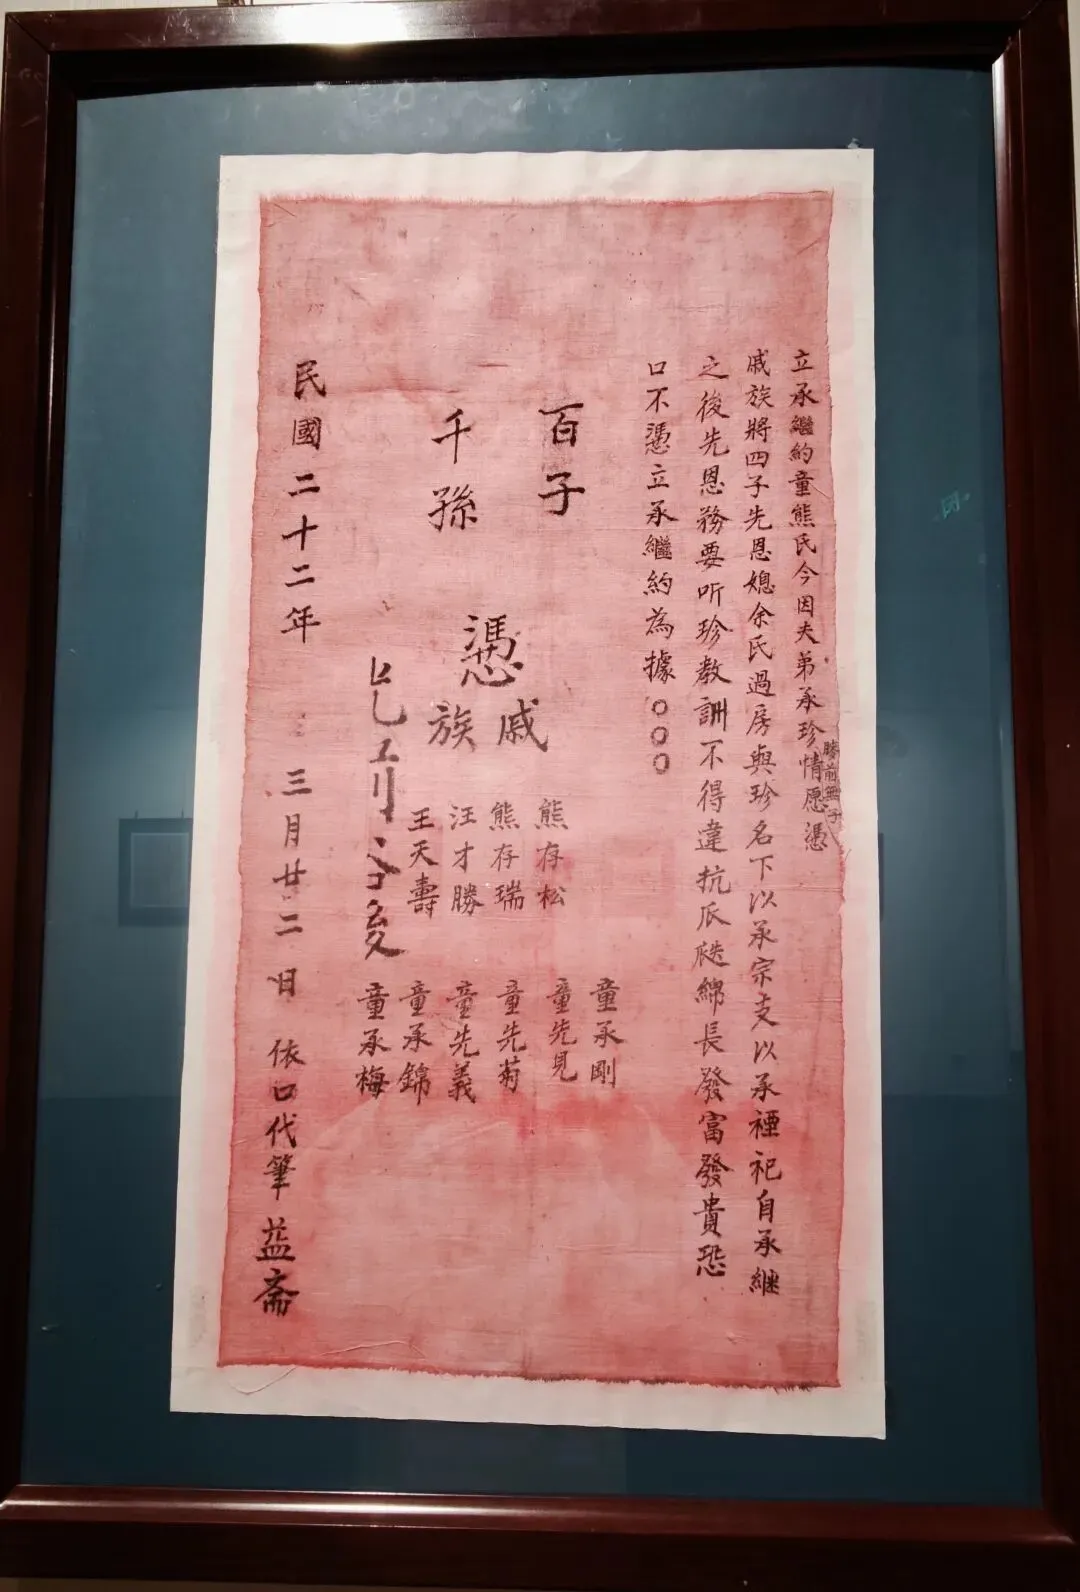 立承繼約童熊氏今因夫弟承珍情愿憑
膝前無子
戚族將四子先恩媳余氏過房與珍名下以承宗支以承禋祀自承継
之後先恩務要听珍教訓不得違抗瓜瓞綿長發富發貴恐
口不憑立承繼約為據〇〇〇
百子
千孫
憑
戚
族
熊存松
熊存瑞
汪才勝
王天壽
童承剛
童先見
童先菊
童先義
童承錦
童承梅
民國二十二年三月廿二日依口代筆益斋